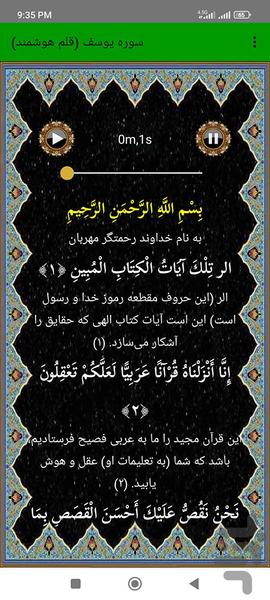 9:35 PM
4.5G
65
سوره یوسف (قلم هوشمند)
0m,1s
بِسْمِ اللَّهِ الرَّحْمَنِ الرَّحِيمِ
به نام خداوند رحمتگر مهربان
الر تِلْكَ آيَاتُ الْكِتَابِ الْمُبِينِ ﴿۱﴾
الر (این حروف مقطعه رموز خدا و رسول
است) این است آیات کتاب الهی که حقایق را
آشکار می‌سازد. (۱)
إِنَّا أَنْزَلْنَاهُ قُرْآنًا عَرَبِيًّا لَعَلَّكُمْ تَعْقِلُونَ
﴿۲﴾
این قرآن مجید را ما به عربی فصیح فرستادیم،
باشد که شما (به تعلیمات او) عقل و هوش
یابید. (۲)
نَحْنُ نَقُصُّ عَلَيْكَ أَحْسَنَ الْقَصَصِ بِمَا